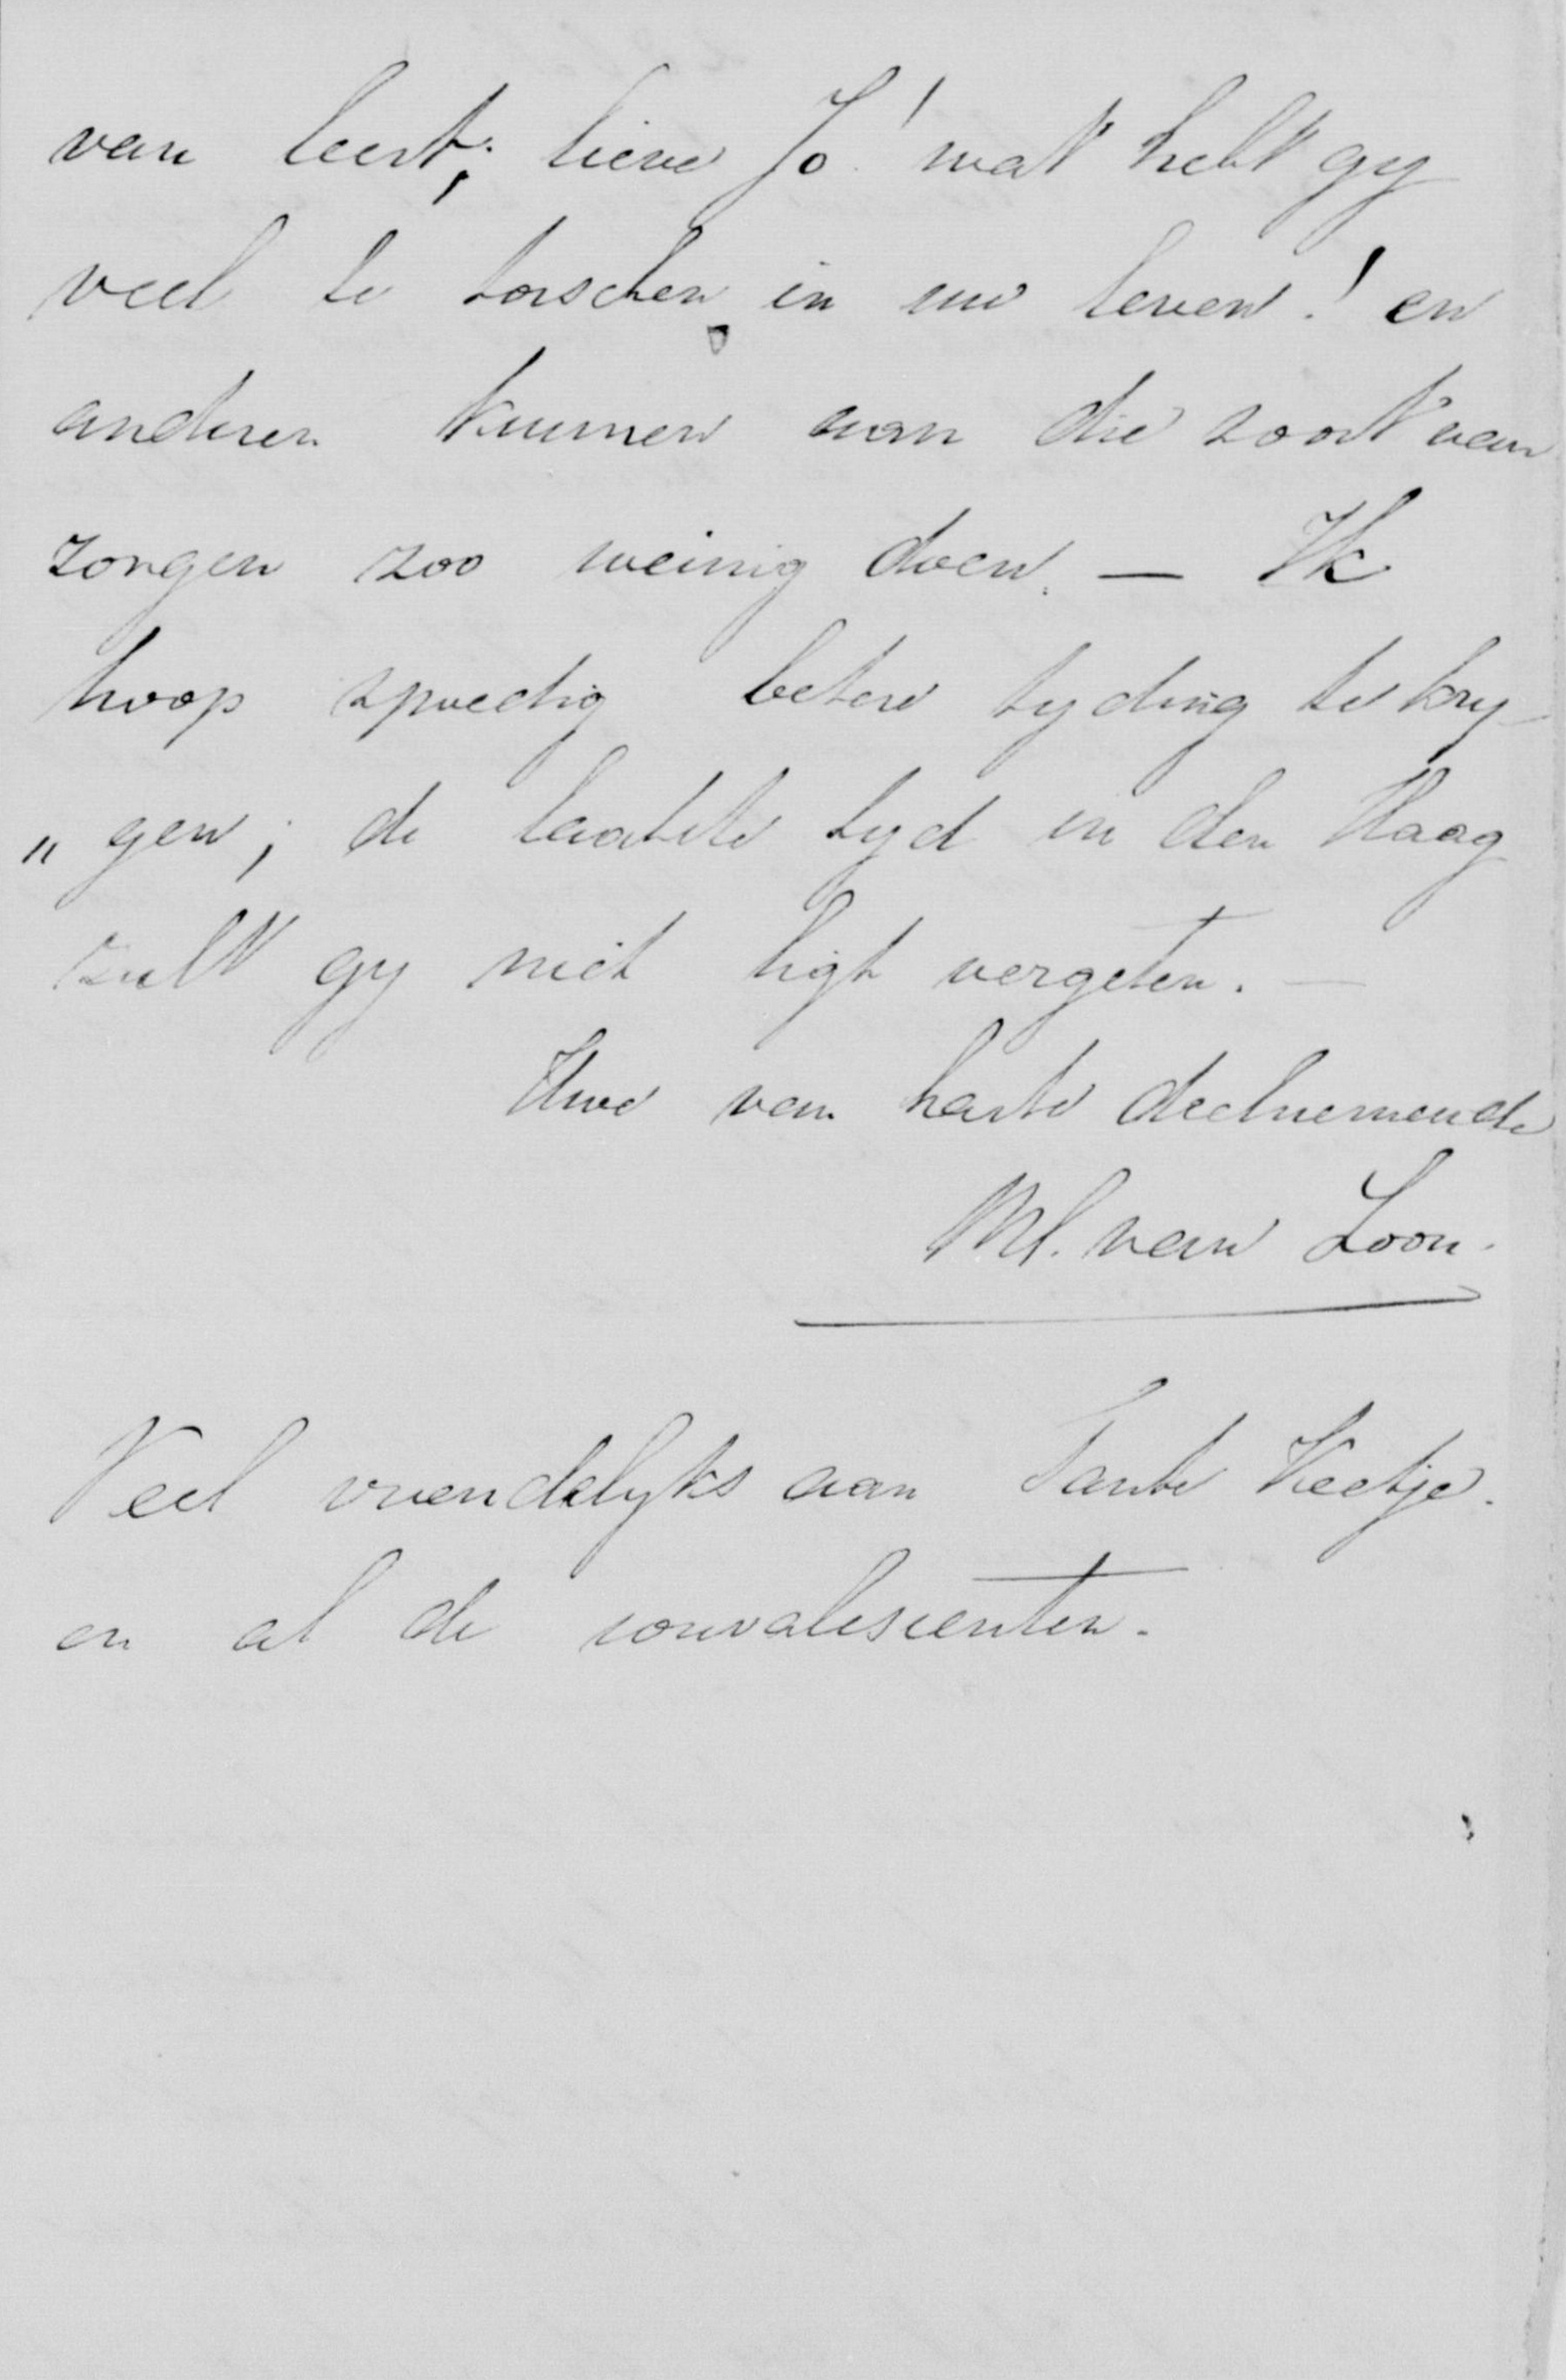 van leert; lieve Jo! wat hebt gy
veel te torschen in uw leven! en
anderen kunnen aan die soort van
zorgen zoo weinig doen. — Ik
hoop spoedig betere tyding te kry-
„ gen; de laatste tyd in den Haag
zult gy niet ligt vergeten. —
Uwe van harte deelnemende
van Loon.
Veel vriendelyks aan Tante Keetje.
en al de convalescenten.